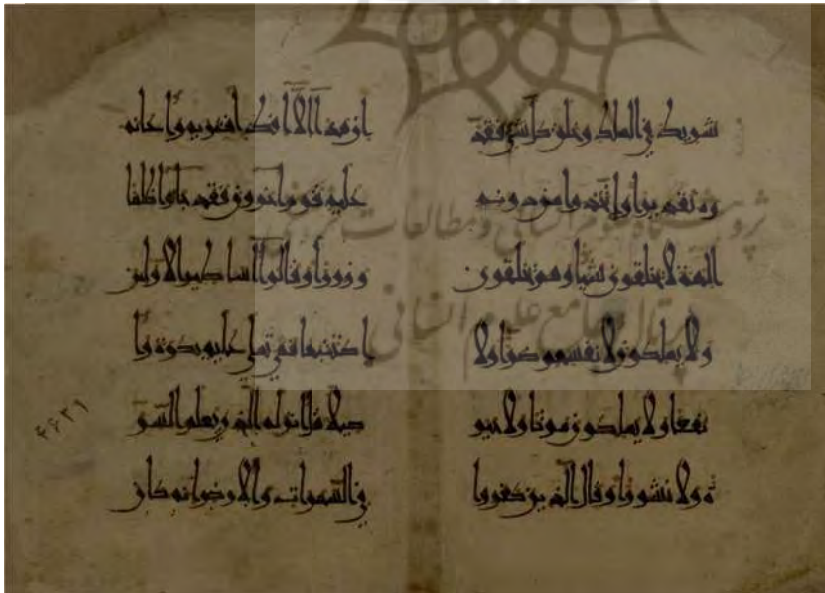 شريك في الملك وخلق كل شي فقد
ره تقديرا واتخذوا من دونه
الهة لا يخلقون شيا وهم يخلقون
ولا يملكون لانفسهم ضرا ولا
نفعا ولا يملكون موتا ولا حيو
ة ولا نشورا وقال الذين كفروا
ان هذا الا افك افتريه واعانه
عليه قوم اخرون فقد جاوا ظلما
وزورا وقالوا اساطير الاولين
اكتتبها فهي تملى عليه بكرة وا
صيلا قل انزله الذي يعلم السر
في السموات والارض انه كان
۴۶۳۱
پژوهشگاه علوم انسانی و مطالعات فرهنگی
پرتال جامع علوم انسانی